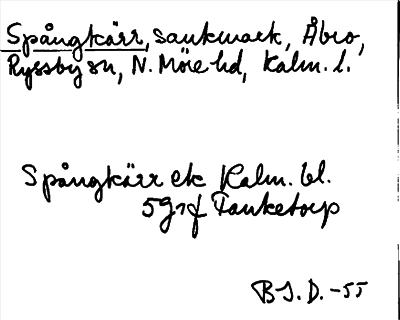 Spångkärr, sankmark, Åbro,
Ryssby sn, N. Möre hd, Kalm. l.
Spångkärr ek Kalm. bl.
5g7f Tanketorp
B J. D. -55